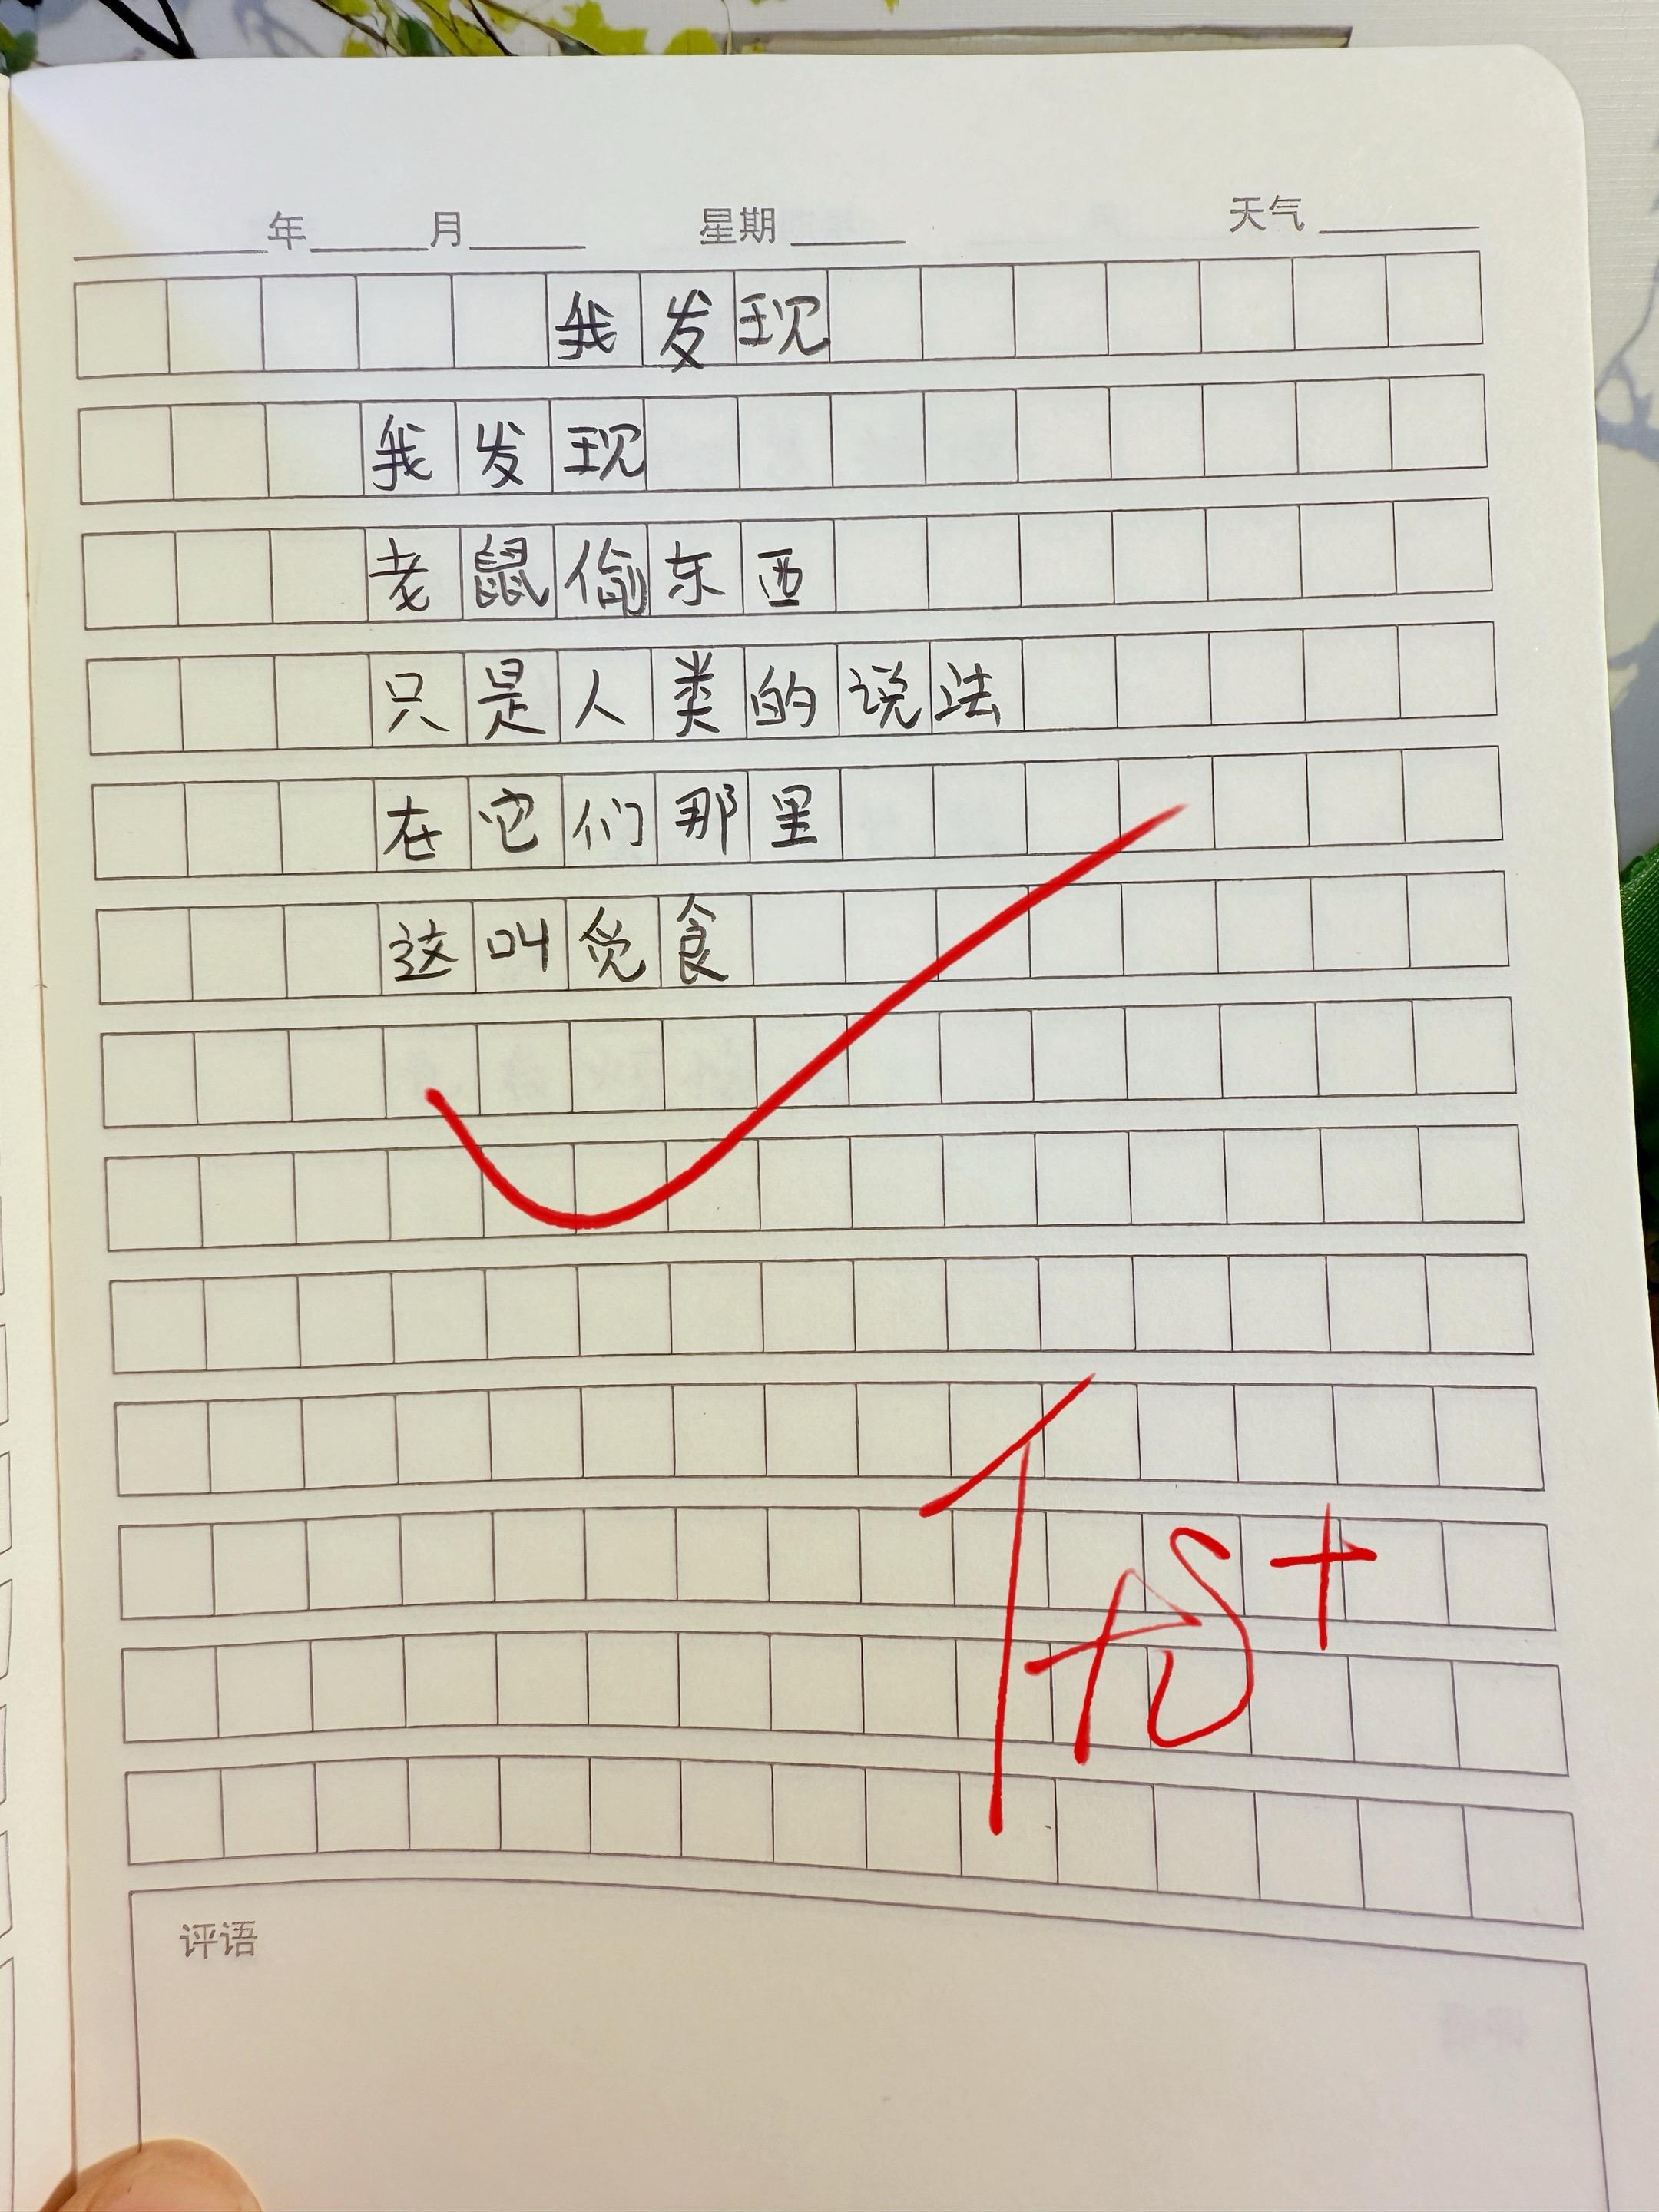 年 月 星期 天气
我发现
我发现
老鼠偷东西
只是人类的说法
在它们那里
这叫觅食
评语